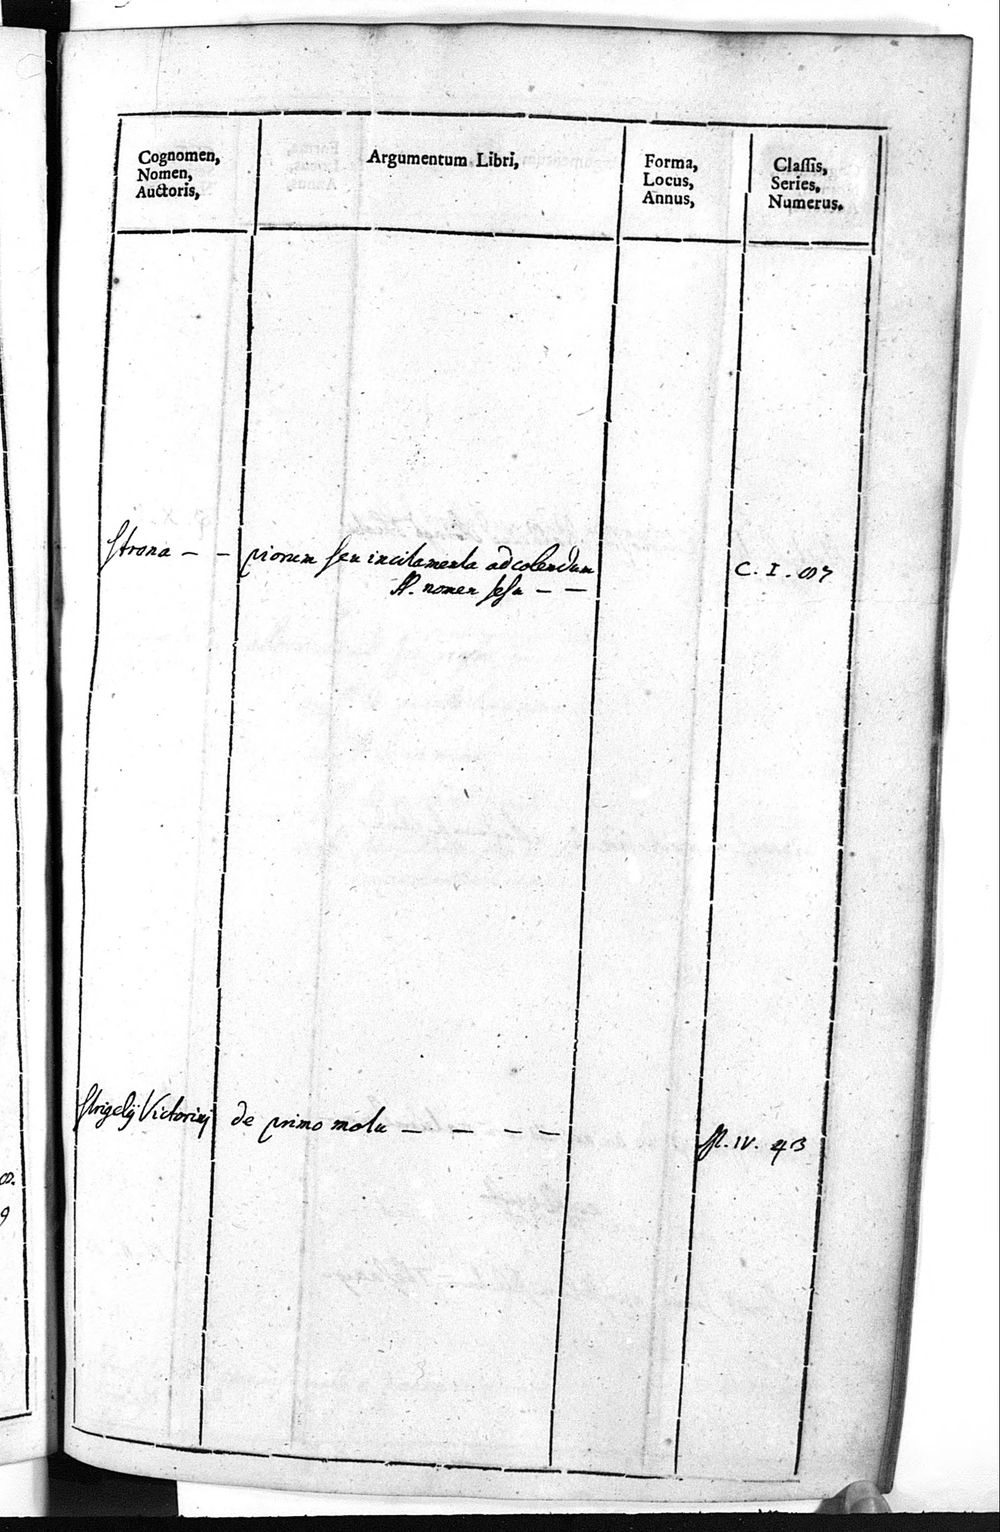 Cognomen,
Nomen,
Auctoris,
Argumentum Libri,
Forma,
Locus,
Annus,
Classis,
Series,
Numerus.
Strona – – piorum seu incitamenta ad colendum
SS. nomen Jesu – –
C. I.
Strigelij Victorinj de primo motu – – – –
IV. 43